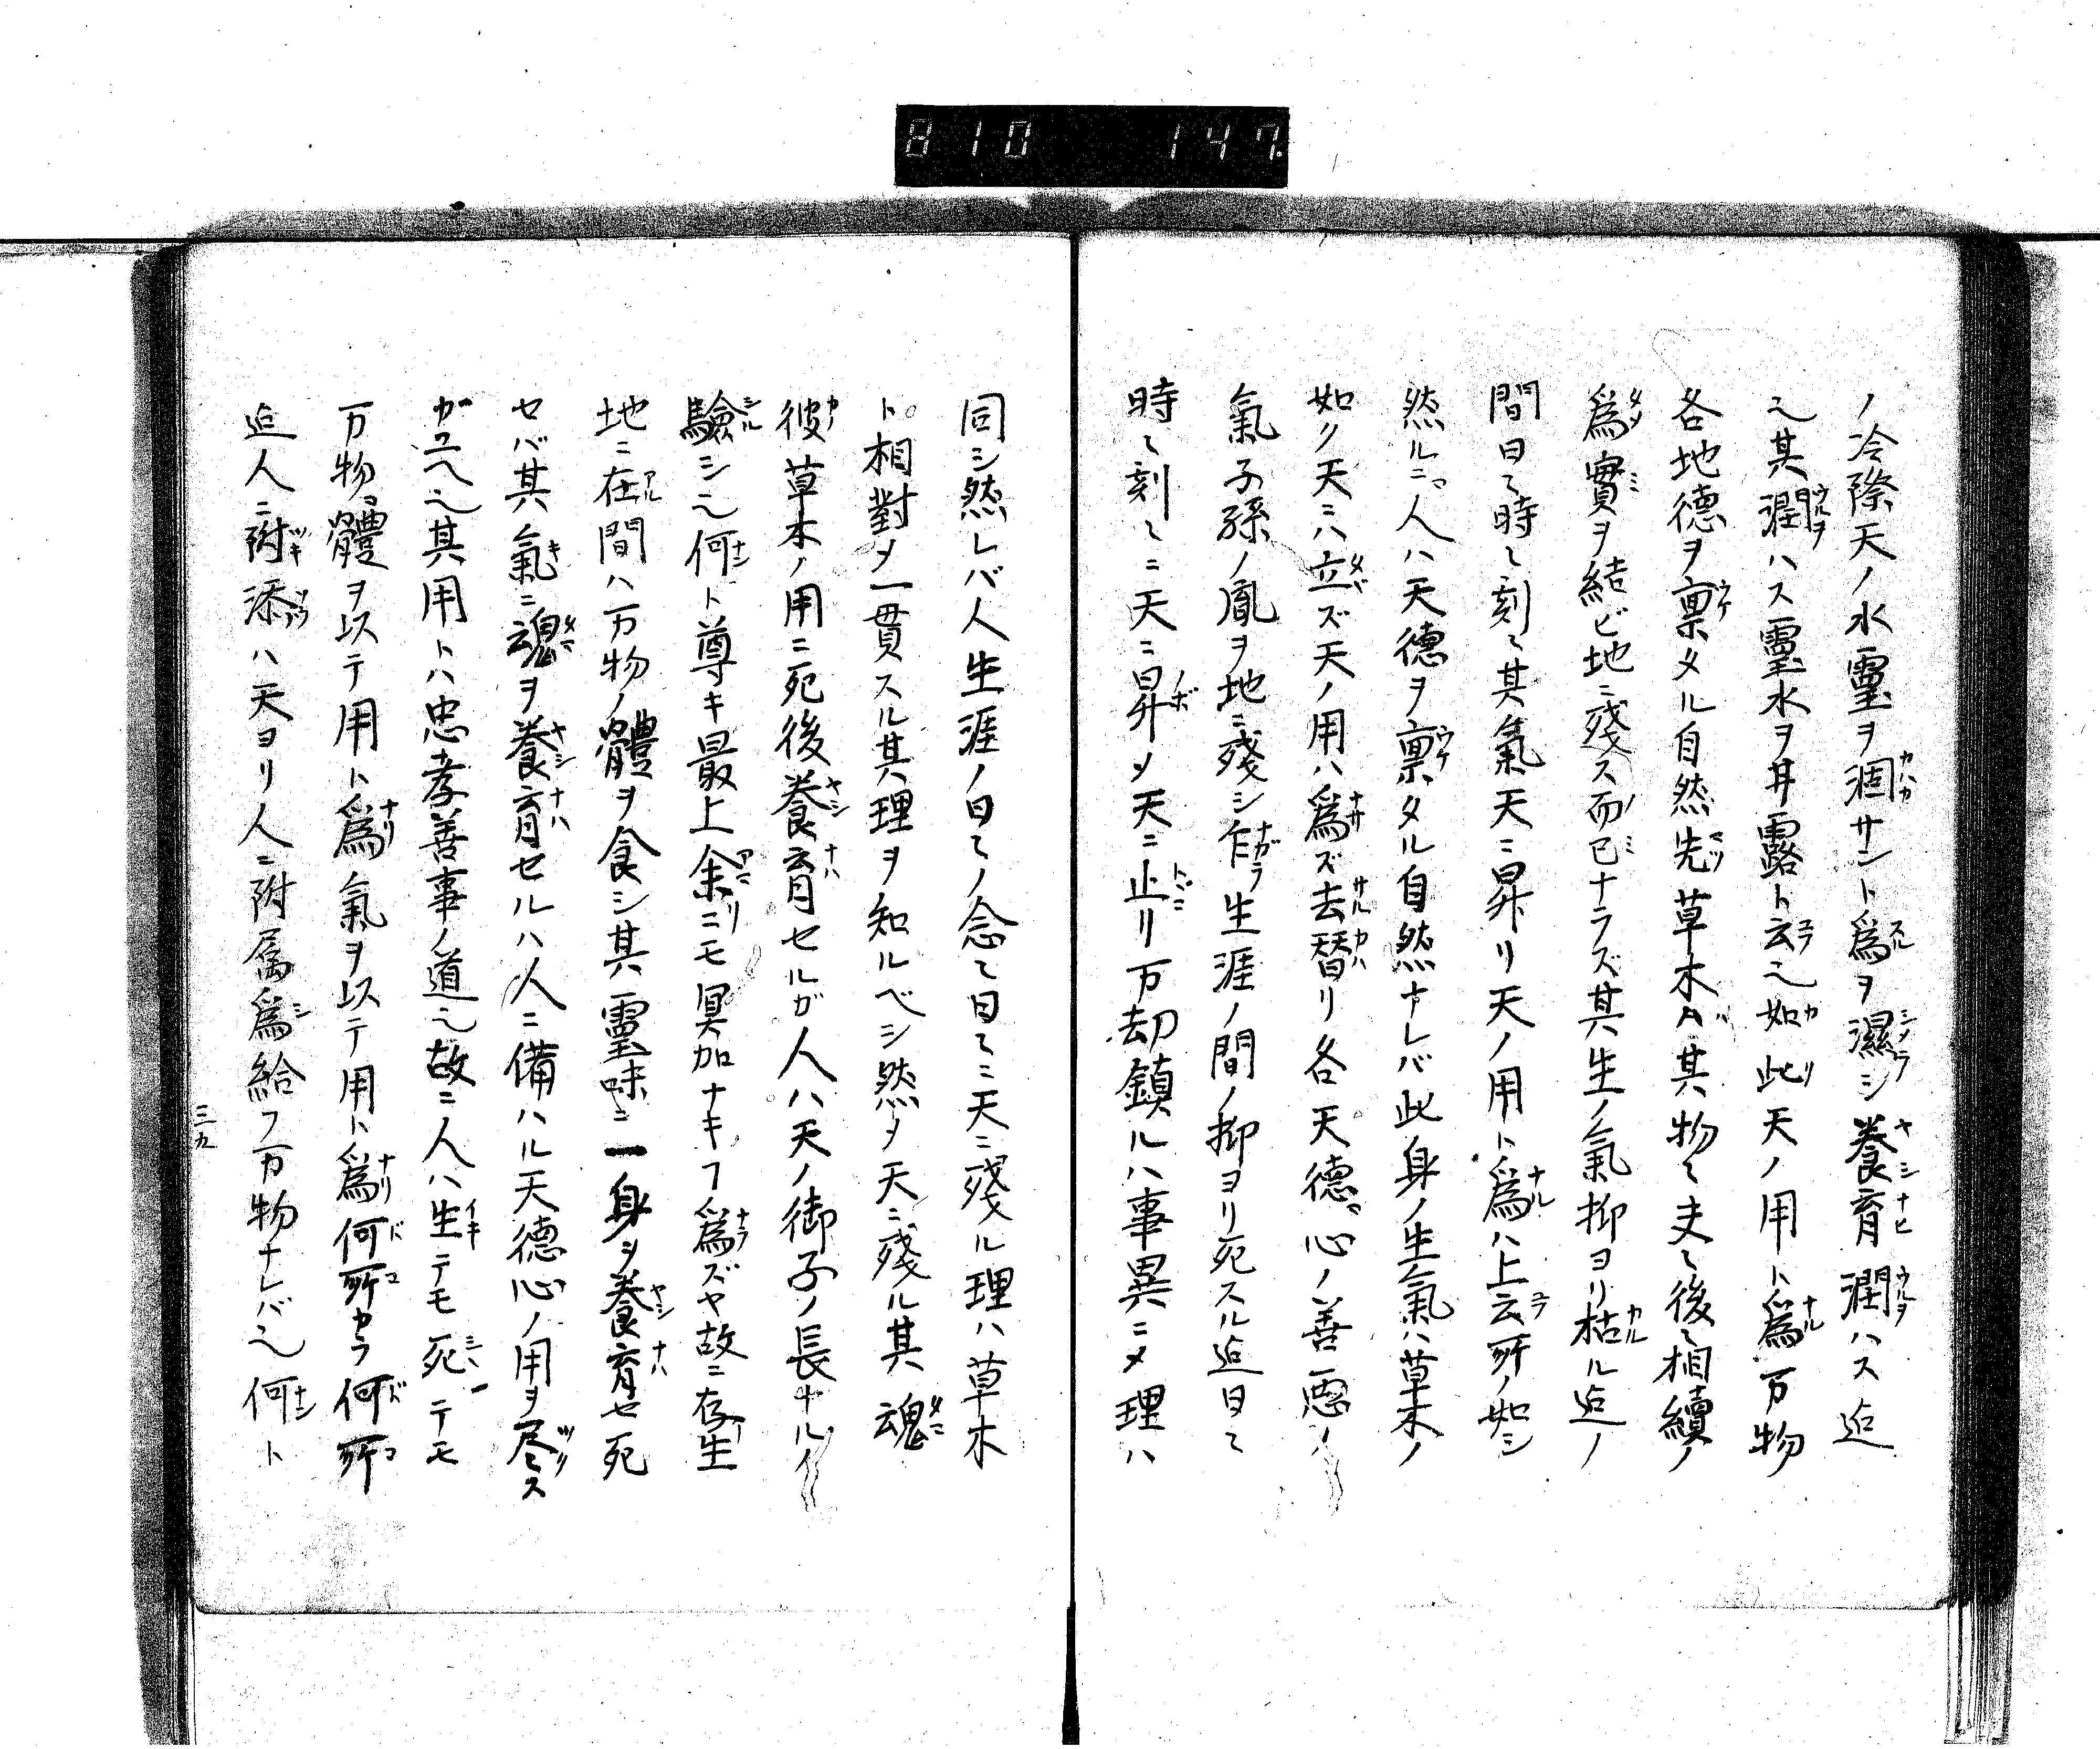 810 147.
ノ冷際天ノ水靈ヲ涸サント爲ヲ濕シ養育潤ハス迠
之其潤ハス靈水ヲ井露ト云之如此天ノ用ト爲万物
各地德ヲ稟タル自然先草木ハ其物〻夫〻後〻相續ノ
爲實ヲ結ビ地ニ殘ス而已ナラズ其生ノ氣抑ヨリ枯ル迠ノ
間日〻時〻刻〻其氣天ニ昇リ天ノ用ト爲ハ上云所ノ如シ
然ルニ人ハ天德ヲ稟タル自然ナレバ此身ノ生氣ハ草木ノ
如ク天ニハ立ズ天ノ用ハ爲ズ去替リ各天德心ノ善悪ノ
氣子孫ノ鳳ヲ地ニ殘シ乍生涯ノ間ノ抑ヨリ死スル迠日〻
時〻刻〻ニ天ニ昇メ天ニ止リ万却鎮ルハ事異ニメ理ハ
同シ然レバ人生涯ノ日〻ノ念〻日〻ニ天ニ殘ル理ハ草木
ト相對メ一貫スル其理ヲ知ルベシ然メ天ニ殘ル其魂
彼草木ノ用ニ死後養育セルガ人ハ天ノ御子ノ長ナルノ
驗シ之何ト尊キ最上余ニモ冥加ナキフ爲ズヤ故ニ存生
地ニ在間ハ万物ノ體ヲ食シ其靈味ニ一身ヲ養育セ死
セバ其氣ニ魂ヲ養育セルハ人ニ備ハル天德心ノ用ヲ尽ス
ガユヘ之其用トハ忠孝善事ノ道之故ニ人ハ生テモ死テモ
万物體ヲ以テ用ト爲氣ヲ以テ用ト爲何所カラ何所
迠人ニ附添ハ天ヨリ人ニ附属爲給フ万物ナレバ之何ト
三九